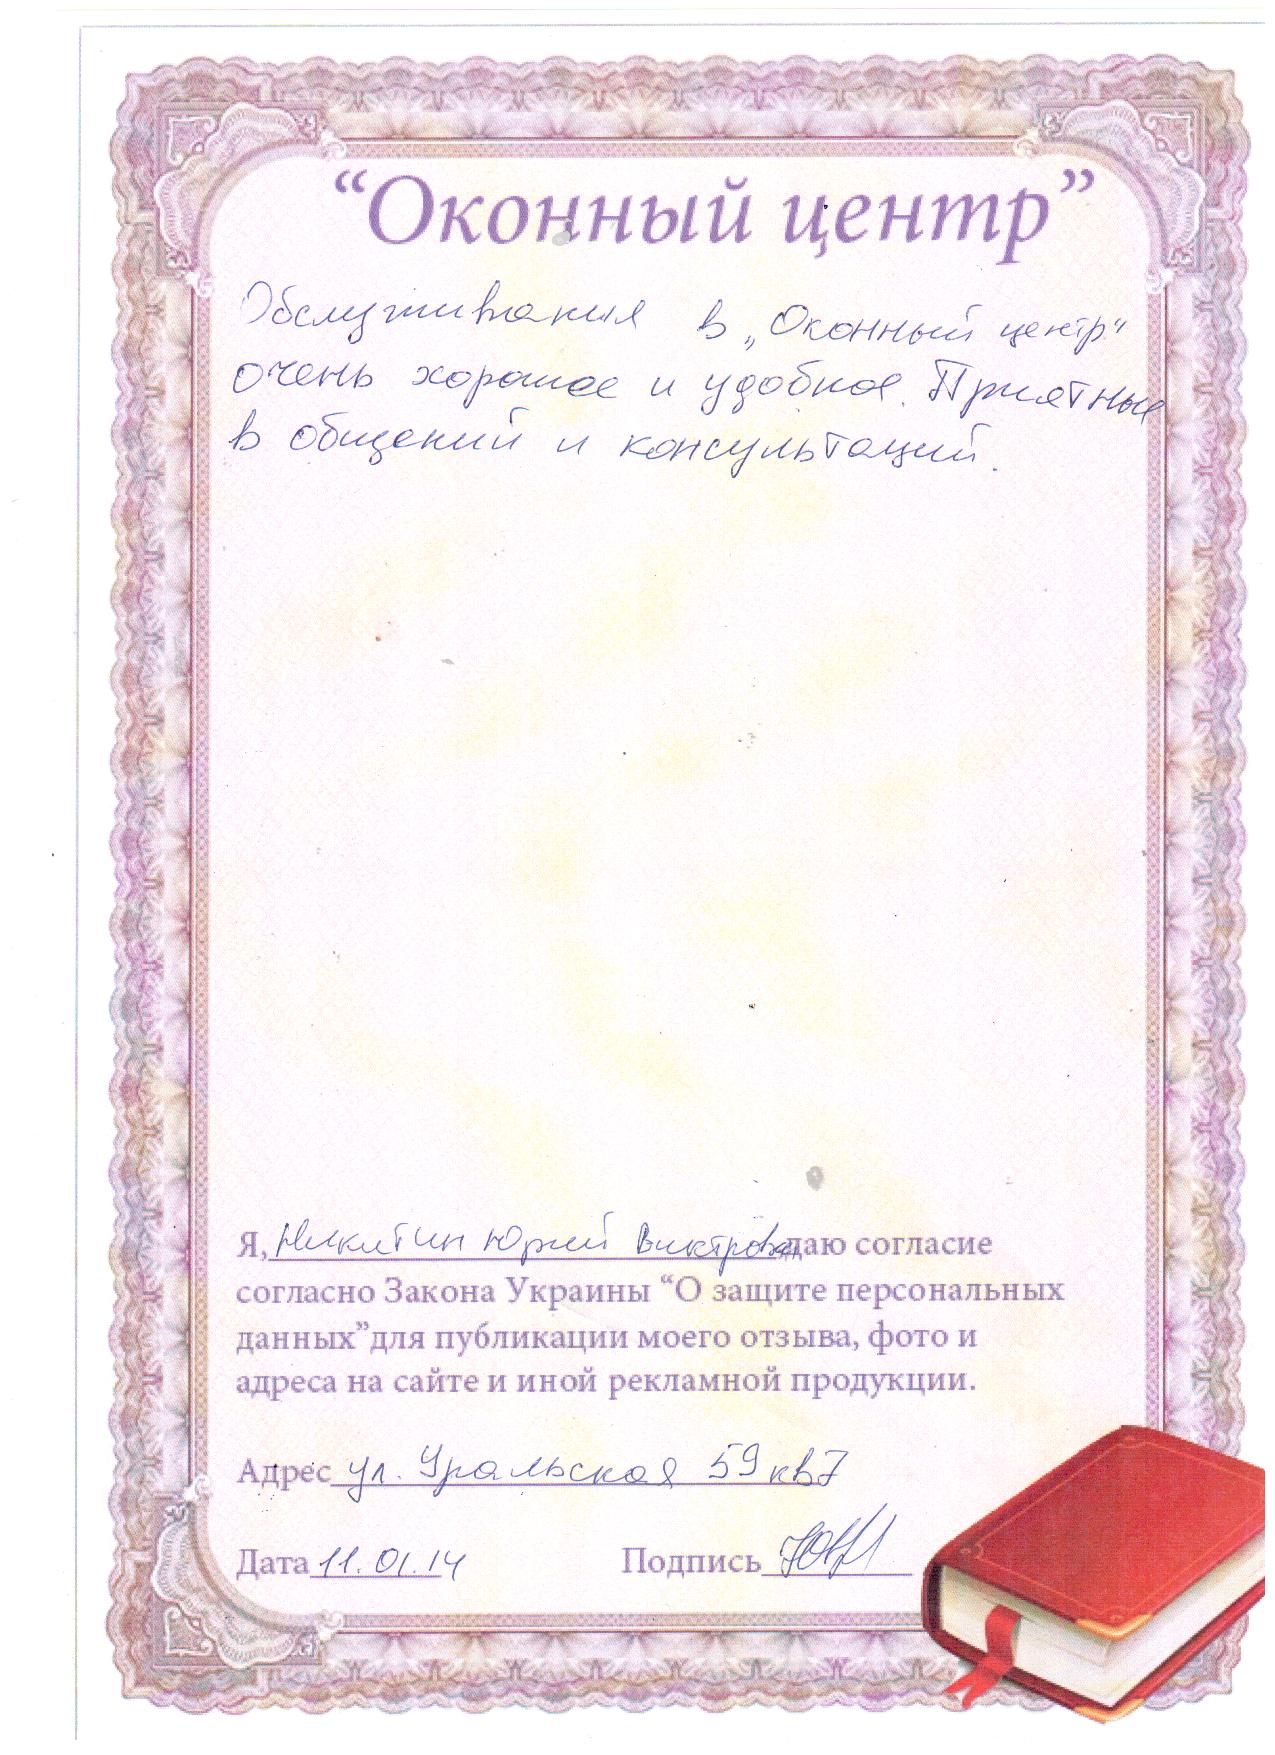 “Оконный центр”
Обслуживания в „Оконный центр“
очень хорошое и удобное. Приятные
в общений и консультаций.
Я, Никитин Юрий Викторович даю согласие
согласно Закона Украины “О защите персональных
данных”для публикации моего отзыва, фото и
адреса на сайте и иной рекламной продукции.
Адрес ул. Уральская 59 кв 7
Дата 11.01.14 Подпись